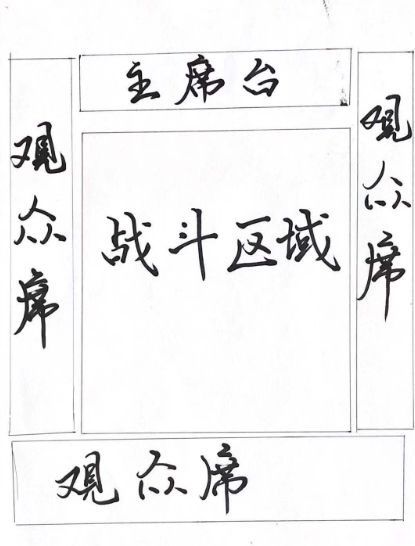 主席台
观众席
战斗区域
观众席
观众席